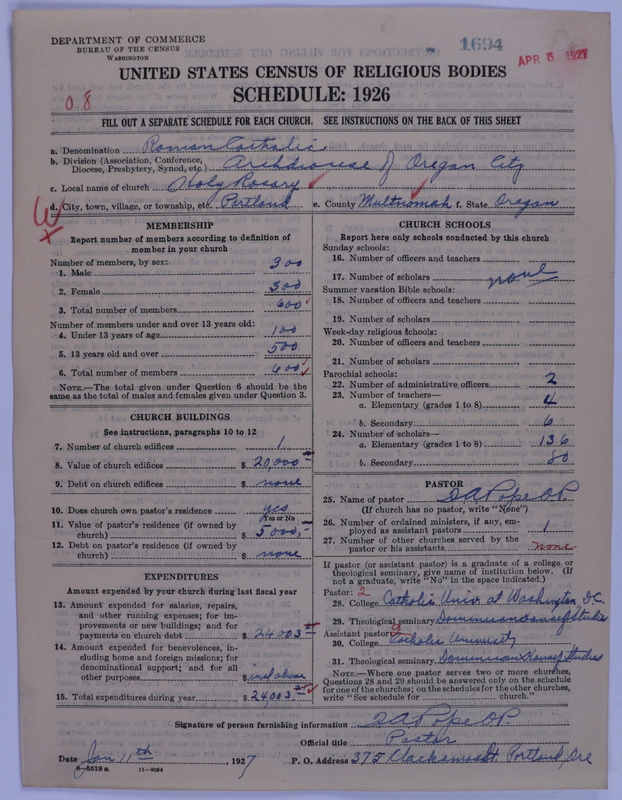 DEPARTMENT OF COMMERCE
BUREAU OF THE CENSUS
WASHINGTON
1694
APR 5 1927
UNITED STATES CENSUS OF RELIGIOUS BODIES
SCHEDULE: 1926
08
FILL OUT A SEPARATE SCHEDULE FOR EACH CHURCH. SEE INSTRUCTIONS ON THE BACK OF THIS SHEET
a. Denomination Roman Catholic
b. Division (Association, Conference, Diocese, Presbytery, Synod, etc.) Archdiocese of Oregon City
c. Local name of church Holy Rosary
d. City, town, village, or township, etc. Portland e. County Multnomah f. State Oregon
MEMBERSHIP
Report number of members according to definition of
member in your church
Number of members, by sex:
1. Male 300
2. Female 300
3. Total number of members 600
Number of members under and over 13 years old:
4. Under 13 years of age 100
5. 13 years old and over 500
6. Total number of members 600
NOTE.—The total given under Question 6 should be the
same as the total of males and females given under Question 3.
CHURCH BUILDINGS
See instructions, paragraphs 10 to 12
7. Number of church edifices 1
8. Value of church edifices $ 20,000
9. Debt on church edifices $ none
10. Does church own pastor's residence yes
(Yes or No
11. Value of pastor's residence (if owned by
church) $ 5000,
12. Debt on pastor's residence (if owned by
church) $ none
EXPENDITURES
Amount expended by your church during last fiscal year
13. Amount expended for salaries, repairs,
and other running expenses; for im-
provements or new buildings; and for
payments on church debt $ 24003
14. Amount expended for benevolences, in-
cluding home and foreign missions; for
denominational support; and for all
other purposes $ incl above
15. Total expenditures during year $ 24003
CHURCH SCHOOLS
Report here only schools conducted by this church
Sunday schools:
16. Number of officers and teachers
17. Number of scholars none
Summer vacation Bible schools:
18. Number of officers and teachers
19. Number of scholars
Week-day religious schools:
20. Number of officers and teachers
21. Number of scholars
Parochial schools:
22. Number of administrative officers 2
23. Number of teachers—
a. Elementary (grades 1 to 8) 4
b. Secondary 6
24. Number of scholars—
a. Elementary (grades 1 to 8) 136
b. Secondary 80
PASTOR
25. Name of pastor D A Pope O.P.
(If church has no pastor, write "None")
26. Number of ordained ministers, if any, em-
ployed as assistant pastors 1
27. Number of other churches served by the
pastor or his assistants none
If pastor (or assistant pastor) is a graduate of a college or
theological seminary, give name of institution below. (If
not a graduate, write "No" in the space indicated.)
Pastor: 2
28. College Catholic Univ at Washington, D.C.
29. Theological seminary Dominican House of Studies
Assistant pastor: 2
30. College Catholic University
31. Theological seminary Dominican House of Studies
NOTE.—Where one pastor serves two or more churches,
Questions 28 and 29 should be answered only on the schedule
for one of the churches; on the schedules for the other churches,
write "See schedule for church."
Signature of person furnishing information D A Pope O.P.
Official title Pastor
Date Jan 11th, 1927 P. O. Address 375 Clackamas St. Portland, Ore
6–5518 a 11—9084